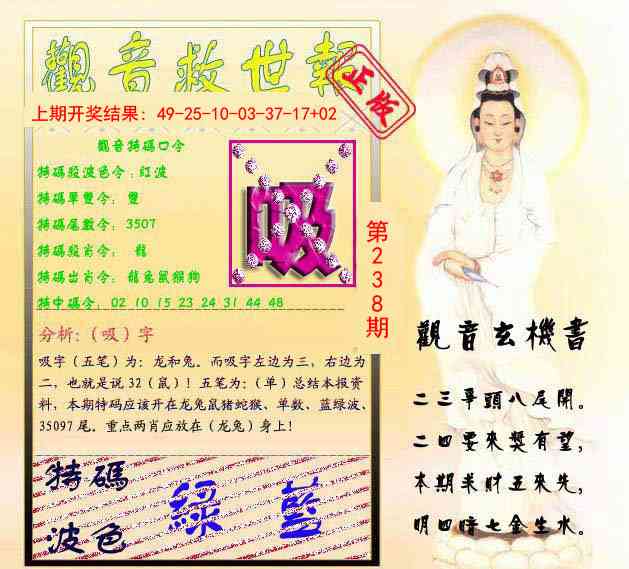 觀音救世報
正版
上期开奖结果：49-25-10-03-37-17+02
觀音特碼口令
特碼殺波色令：紅波
特碼單雙令： 雙
特碼尾數令： 3507
特碼殺肖令： 龍
特碼出肖令： 龍兔鼠猴狗
特中碼令：02 10 15 23 24 31 44 48
吸
第238期
分析：（吸）字
吸字（五笔）为：龙和兔。而吸字左边为三，右边为
二，也就是说 32（鼠）！五笔为：（单）总结本报资
料，本期特码应该开在龙兔鼠猪蛇猴、单数、蓝绿波、
35097 尾。重点两肖应放在（龙兔）身上！
特碼
波色
綠 藍
觀音玄機書
二三爭頭八尾開。
二四要來獎有望，
本期求財五來先，
明四暗七金生水。